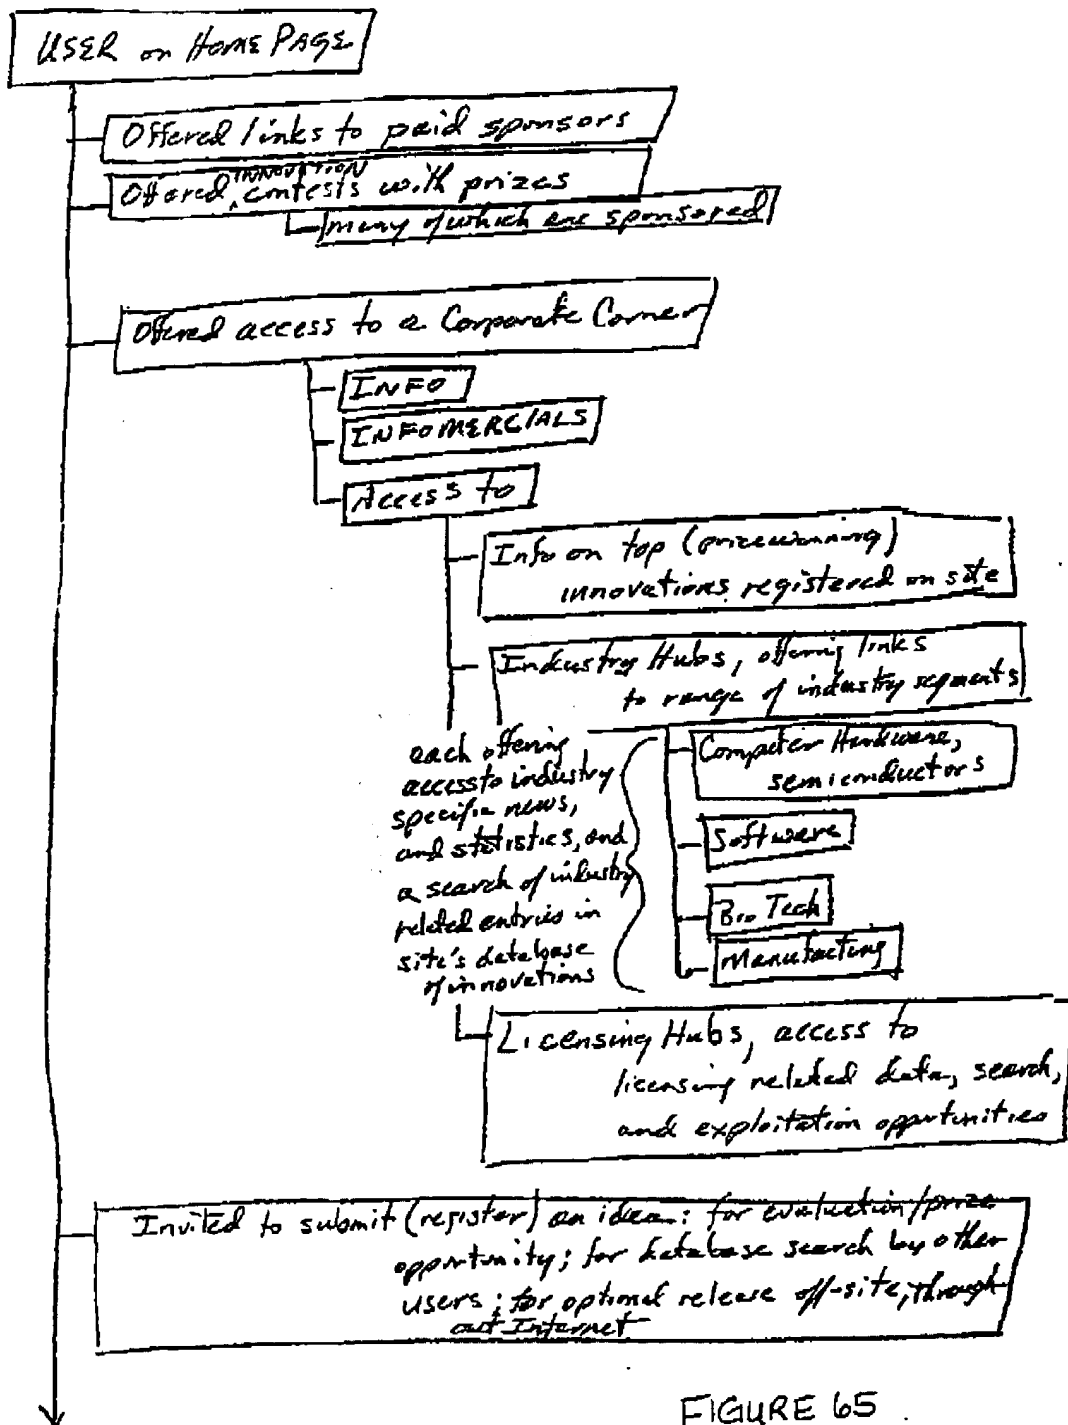 USER on HOME PAGE
Offered links to paid sponsors
INNOVATION
Offered ^ contests with prizes
many of which are sponsored
Offered access to a Corporate Corner
INFO
INFOMERCIALS
Access to
Info on top (prizewinning)
innovations registered on site
Industry Hubs, offering links
to range of industry segments
each offering
access to industry
specific news,
and statistics, and
a search of industry
related entries in
site's database
of innovations
Computer Hardware,
semiconductors
Software
Bio Tech
Manufacturing
Licensing Hubs, access to
licensing related data, search,
and exploitation opportunities
Invited to submit (register) an idea: for evaluation/prize
opportunity; for database search by other
users; for optional release off-site, through
out Internet
FIGURE 65